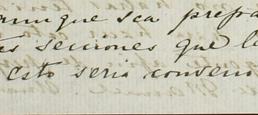 que sea prefa
tes secciones que l
Esto seria conveni